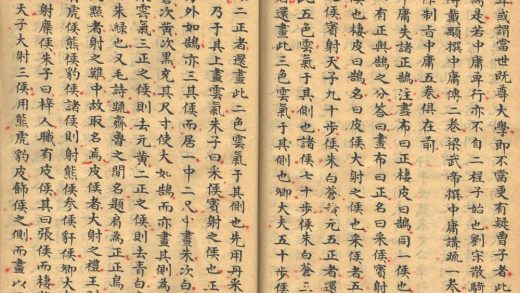 年或謂當世既尊大學即不當更有疑曾子者此
為是若中庸單行亦不自二程子始也劉宋散騎
侍戴顒撰中庸傳二卷梁武帝撰中庸講疏一卷
作制古中庸五卷俱在前
中庸失諸正鵠注畫布曰正棲皮曰鵠同一侯也
有正與鵠之分荅曰畫布曰正名曰采侯賓射
侯也棲皮曰鵠名曰皮侯大射之侯也采侯者五
侯賓射天子九十步侯朱白荅元五正
此五色雲氣于其側也諸侯七十步侯朱白荅三
還畫此三色雲氣于其側也卿大夫五十步侯
二正者還畫此二色雲氣于其側也先用丹采
乃于其上畫雲氣朱子曰采侯賓射之侯也正
外如鵠亦三其侯而居一中二尺畫朱次白
次黃次黑充其尺寸使大如鵠而亦畫其側為
雲氣三正之侯則去元黃二正之侯則去青白
朱綠也又毛詩疏齊魯之間名題肩為正正鳥
黠者射之難中故取名焉皮侯者大射之禮王
虎侯熊侯豹侯諸侯則射熊侯参侯豻侯卿大
射麋侯朱子曰梓人職有皮侯其曰張侯而棲
天子大射三侯用熊虎豹皮飾侯之側而畫以